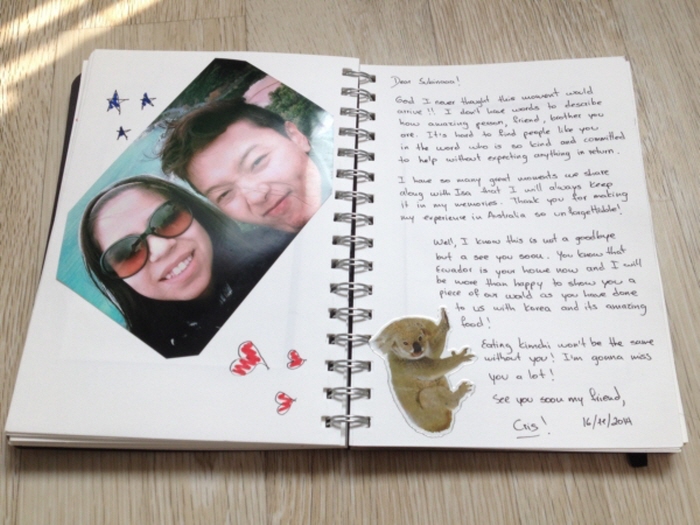 Dear Subinnnn!
God I never thought this moment would
arrive!! I don't have words to describe
how amazing person, friend, brother you
are. It's hard to find people like you
in the word who is so kind and committed
to help without expecting anything in return.
I have so many great moments we share
along with Isa that I will always keep
it in my memories. Thank you for making
my experience in Australia so unforgettable!
Well, I know this is not a goodbye
but a see you soon. You know that
Ecuador is your home now and I will
be more than happy to show you a
piece of our world as you have done
to us with Korea and its amazing
food!
Eating kimchi won't be the same
without you! I'm gonna miss
you a lot!
See you soon my friend,
Cris!
16/11/2014